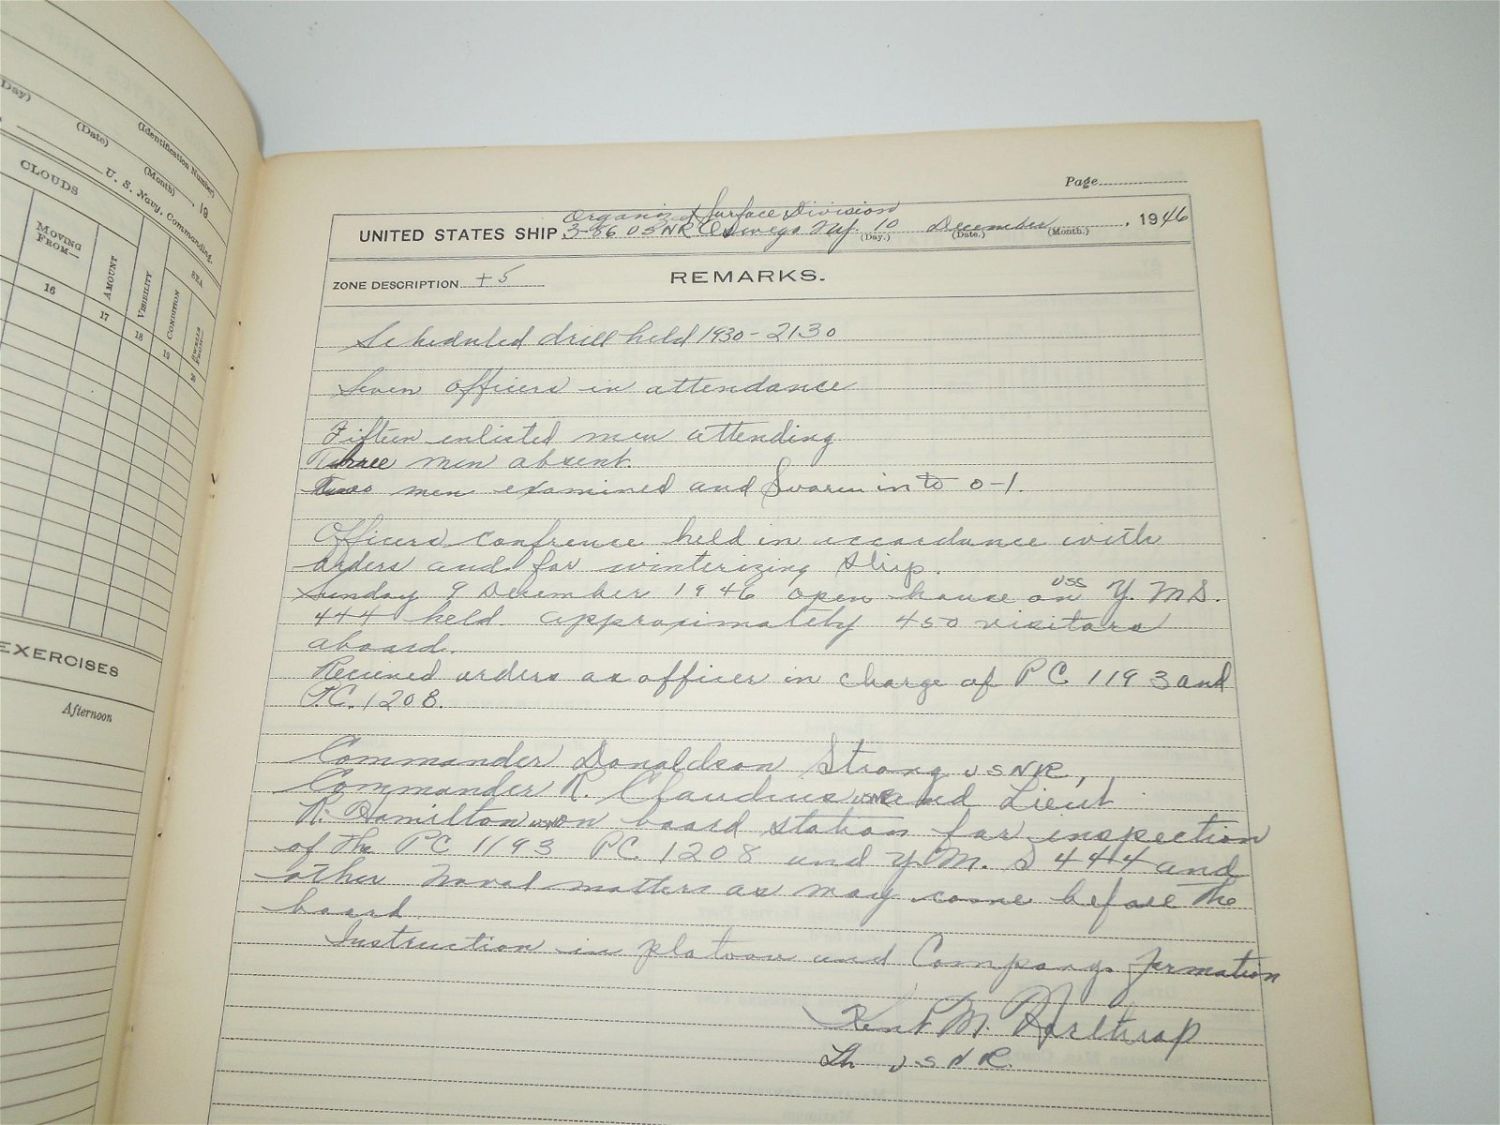 (Day)
(Date)
(Identification Number)
(Month)
, 19
U. S. Navy, Commanding.
CLOUDS
SEA
MOVING FROM—
AMOUNT
VISIBILITY
CONDITION
SWELLS FROM—
16
17
18
19
20
EXERCISES
Afternoon
Page
Organized Surface Division
UNITED STATES SHIP 3-86 USNR Oswego N.Y. 10 December , 1946
(Day.) (Date.) (Month.)
ZONE DESCRIPTION +5 REMARKS.
Scheduled drill held 1930-2130
Seven officers in attendance
Fifteen enlisted men attending
Three men absent.
men examined and Sworn in to O-1.
Officers confrence held in accordance with
orders and for winterizing ship.
Sunday 9 December 1946 open house on USS Y.M.S.
444 held approximately 450 visitors
aboard.
Recieved orders as officer in charge of PC 1193 and
P.C. 1208.
Commander Donaldson Strong USNR,
Commander R. Claudius USNR and Lieut
R. Hamilton on board station for inspection
of the PC 1193 PC 1208 and Y.M.S 444 and
other Naval matters as may come before the
board.
Instruction in platoon and Company formation
Kent M. Harltrop
Lt. USNR.